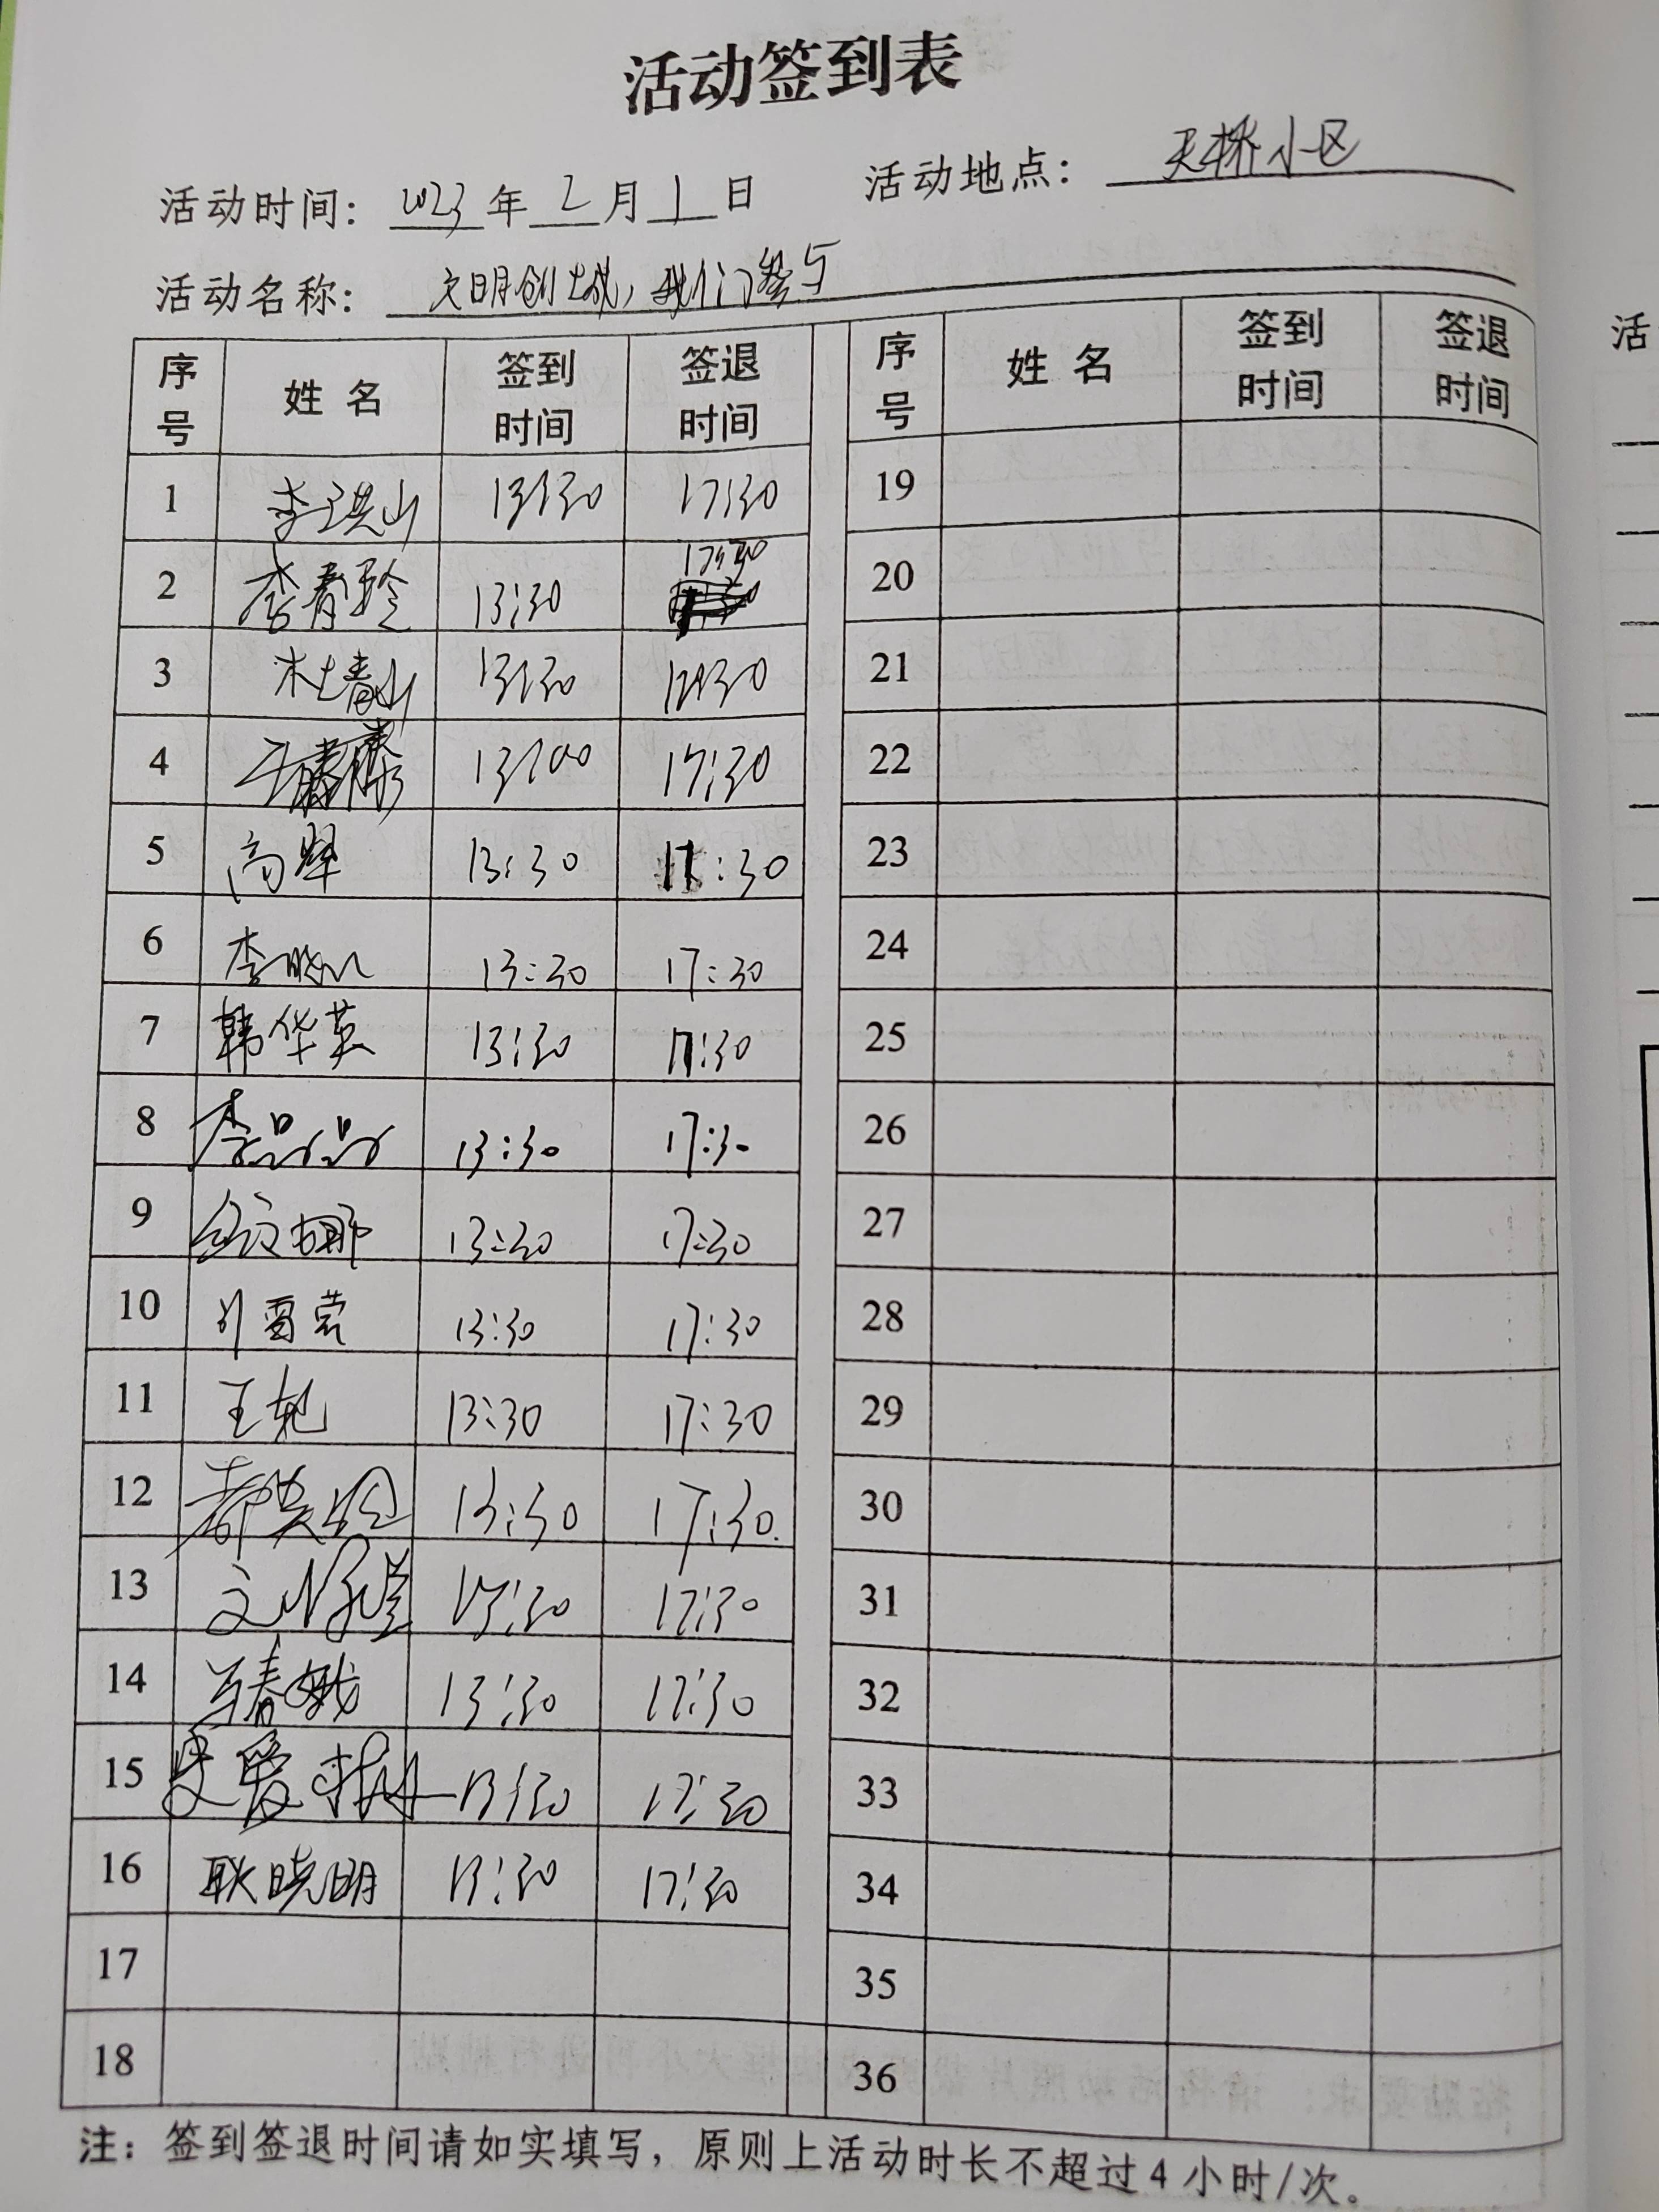 活动签到表
活动时间：2023年2月1日 活动地点：天桥小区
活动名称：文明创城，我们参与
序号 姓名 签到时间 签退时间 序号 姓名 签到时间 签退时间
1 13:30 17:30 19
2 李春玲 13:30 17:30 20
3 杜春山 13:30 17:30 21
4 13:00 17:30 22
5 高翠 13:30 17:30 23
6 李 13:30 17:30 24
7 韩华英 13:30 17:30 25
8 李晶晶 13:30 17:30 26
9 13:30 17:30 27
10 13:30 17:30 28
11 王 13:30 17:30 29
12 13:30 17:30. 30
13 13:30 17:30 31
14 马春娥 13:30 17:30 32
15 13:30 17:30 33
16 耿晓明 13:30 17:30 34
17 35
18 36
注：签到签退时间请如实填写，原则上活动时长不超过4小时/次。
活